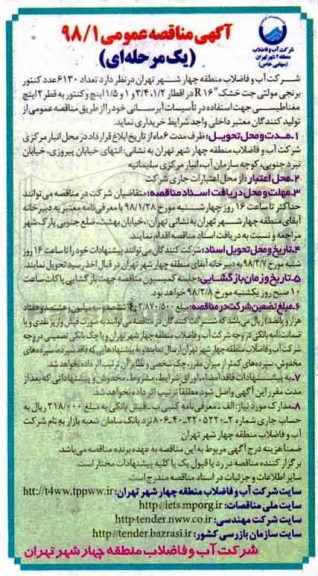 شرکت آب و فاضلاب
منطقه ۴ شهر تهران
(سهامی خاص)
آگهی مناقصه عمومی ۹۸/۱
(یک مرحله‌ای)
شرکت آب و فاضلاب منطقه چهار شهر تهران در نظر دارد تعداد ۶۱۳۰ عدد کنتور
برنجی مولتی جت خشک R۱۶۰ در اقطار ۱/۲، ۳/۴، ۱ و ۱/۵ اینچ و کنتور به قطر ۲ اینچ
مغناطیسی جهت استفاده در تأسیسات آبرسانی خود را از طریق مناقصه عمومی از
تولید کنندگان معتبر داخلی واجد شرایط خریداری نماید.
۱ـ مدت و محل تحویل: ظرف مدت ۶ ماه از تاریخ ابلاغ قرارداد در محل انبار مرکزی
شرکت آب و فاضلاب منطقه چهار تهران به نشانی: انتهای خیابان پیروزی، خیابان
نبرد جنوبی، کوچه سازمان آب، انبار مرکزی سلیمانیه
۲ـ محل اعتبار: از محل اعتبارات جاری شرکت
۳ـ مهلت و محل دریافت اسناد مناقصه: متقاضیان شرکت در مناقصه می توانند
حداکثر تا ساعت ۱۶ روز چهارشنبه مورخ ۹۸/۱/۲۸ با معرفی نامه معتبر به دبیرخانه
آبفای منطقه چهار شهر تهران به نشانی تهران، خیابان بهشت، ضلع جنوبی پارک شهر
مراجعه و نسبت به دریافت اسناد مناقصه اقدام نمایند.
۴ـ تاریخ و محل تحویل اسناد: شرکت کنندگان می توانند پیشنهادات خود را تا ساعت ۱۶ روز
شنبه مورخ ۹۸/۲/۷ به دبیرخانه آبفای منطقه چهار شهر تهران در قبال اخذ رسید تحویل نمایند.
۵ـ تاریخ و زمان بازگشایی: جلسه کمیسیون مناقصه جهت بازگشایی پاکات ساعت
۱۰ صبح روز یکشنبه مورخ ۹۸/۲/۸ خواهد بود.
۶ـ مبلغ تضمین شرکت در مناقصه:
هزار و پانصد) ریال می باشد که شرکت کنندگان در مناقصه می توانند به صورت فیش واریز نقدی و یا
ضمانت نامه بانکی در وجه شرکت آب و فاضلاب منطقه چهار شهر تهران و یا چک بانکی تضمینی در وجه
شرکت آب و فاضلاب منطقه چهار شهر تهران ارسال نمایند و به پیشنهادهایی که فاقد سپرده، سپرده های
مخدوش، سپرده های کمتر از میزان مقرر، چک شخصی و نظایر آن ترتیب اثر داده نخواهد شد.
۷ـ به پیشنهادات فاقد امضاء، اوراق شرایط، مشروط، مخدوش و پیشنهاداتی که بعد از
مدت مقرر این آگهی واصل شود مطلقا ترتیب اثر داده نخواهد شد.
۸ـ مدارک مورد نیاز: الف ـ معرفی نامه کتبی ب ـ فیش بانکی به مبلغ ۲۱۸/۰۰۰ ریال به
حساب جاری شماره نزد بانک سامان شعبه بازار به نام شرکت
آب و فاضلاب منطقه چهار شهر تهران
ضمنا هزینه درج آگهی مربوط به این مناقصه به عهده برنده مناقصه می باشد.
برگزار کننده مناقصه در رد یا قبول یک یا کلیه پیشنهادات مختار است.
سایر اطلاعات و جزئیات در اسناد مناقصه مندرج است.
سایت شرکت آب و فاضلاب منطقه چهار شهر تهران: htt://t4ww.tppww.ir
سایت ملی مناقصات: http://iets.mporg.ir
سایت شرکت مهندسی: http:tender.nww.co.ir
سایت سازمان بازرسی کشور: http://tender.bazrasi.ir
شرکت آب و فاضلاب منطقه چهار شهر تهران